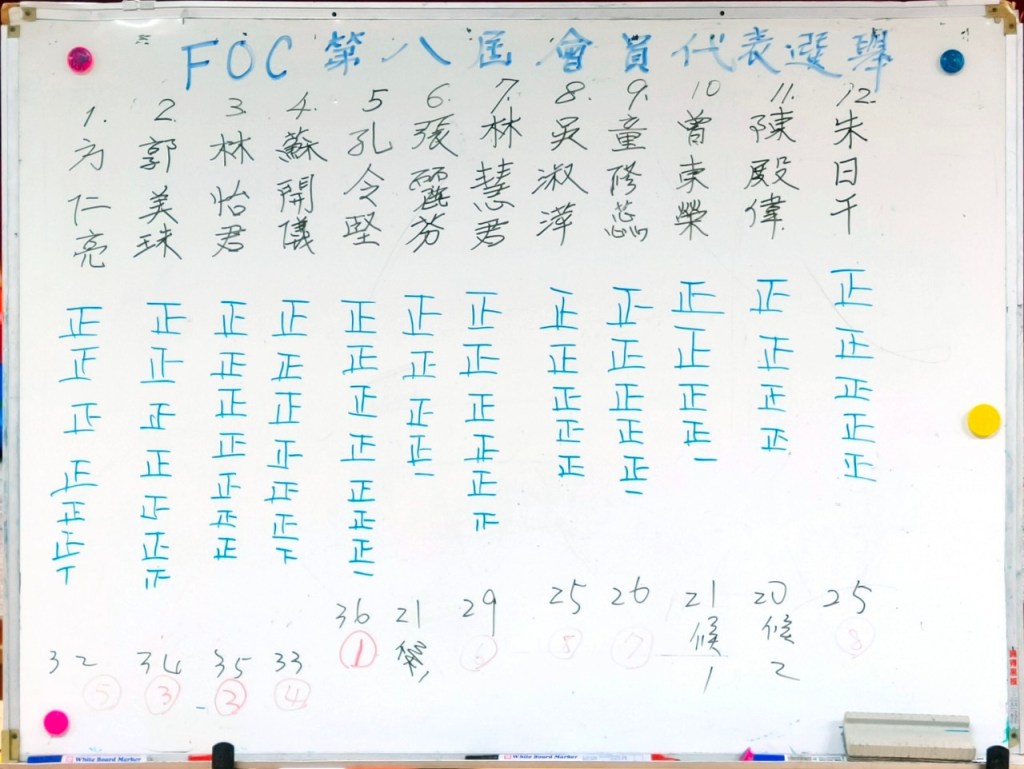 FOC 第八屆會員代表選舉
1. 方仁亮
2. 郭美珠
3 林怡君
4. 蘇開儀
5 孔令堅
6. 張麗芬
7. 林慧君
8. 吳淑萍
9. 童修蕊
10 曾東榮
11. 陳殿偉
12. 朱日千
正正正正正正丅
正正正正正正
正正正正正正正
正正正正正正
正正正正正正正一
正正正正一
正正正正正
正正正正正
正正正正正一
正正正正一
正正正正
正正正正正
32 34 35 33 36 21 29 25 26 21 20 25
⑤ ③ ② ④ ① ⑥ ⑧ ⑦ 候1 候2 ⑧
White Board Marker
White Board Marker